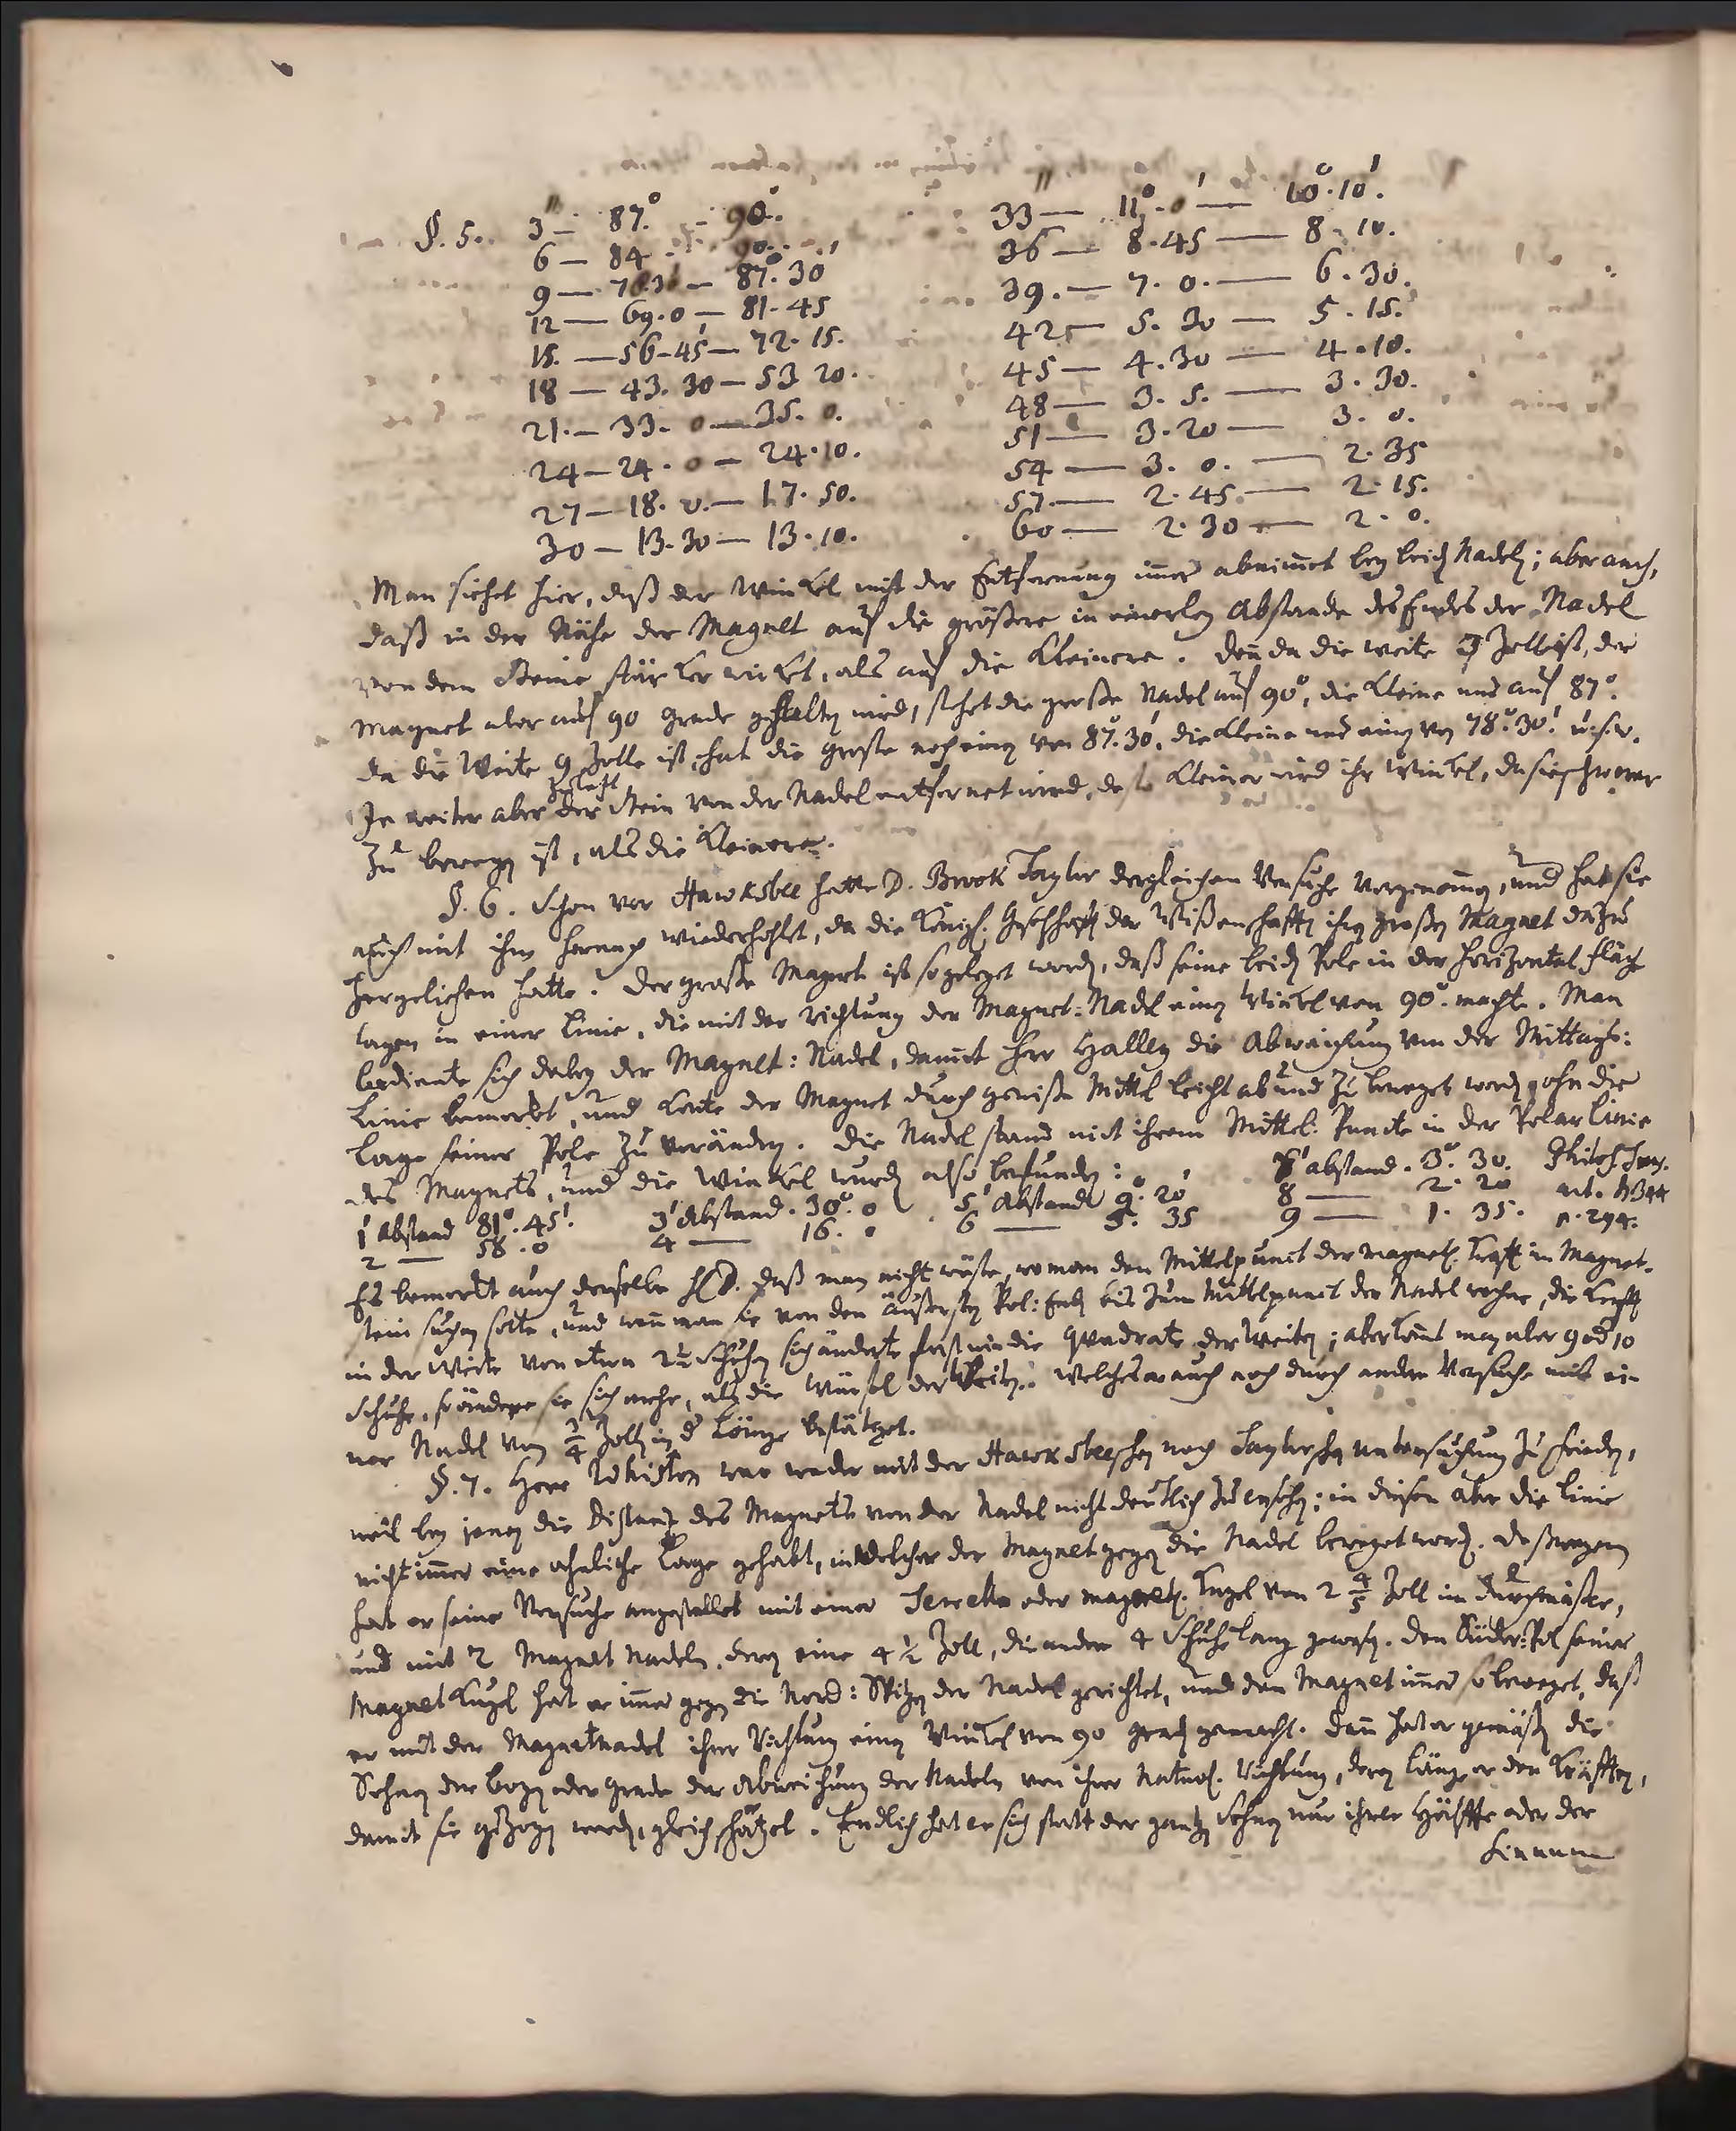 §. 5. 3'' — 87.° — 90°.
6 — 84 — 90.
9 — 78.30 — 87°.30'
12 — 69.0 — 81.45
15. — 56.45 — 72.15.
18 — 43.30 — 53 20.
21. — 33. 0 — 35. 0.
24 — 24. 0 — 24.10.
27 — 18. 0. — 17.50.
30 — 13.30 — 13.10.
33'' — 11°. 0' — 10°.10'.
36 — 8.45 — 8. 10.
39. — 7. 0. — 6.30.
42 — 5. 30 — 5.15.
45 — 4.30 — 4.10.
48 — 3. 5. — 3.30.
51 — 3.20 — 3. 0.
54 — 3. 0. — 2.35
57. — 2.45. — 2.15.
60 — 2.30 — 2. 0.
Man siehet hier, daß der Winkel mit der Entfernung imer abnimmet bey beiden Nadeln; aber auch,
daß in der Nähe der Magnet auf die größere in einerley Abstande des Endes der Nadel
von dem Steine stärker wirkt, als auf die kleinere. Den da die weite 3 Zoll ist, der
Magnet aber auf 90 Grade gehalten wird, stehet die große Nadel auf 90°, die kleine nur auf 87°.
da die Weite 9 Zolle ist, hat die große noch einen von 87°.30', die kleine nur einen von 78°.30'. u.s.w.
Je weiter aber zuletzt der Stein von der Nadel entfernet wird, desto kleiner wird ihr Winkel, da sie schwerer
zu bewegen ist, als die kleinere.
§. 6. Schon vor Hawksbee hatte D. Brook Taylor dergleichen Versuche vorgenommen, und hat sie
auch mit ihm hernach wiederhohlet, da die Königl. Gesellschafft der Wißenschafften ihren großen Magnet dazu
hergeliehen hatte. Der große Magnet ist so geleget worden, daß seine beiden Pole in der Horizontal fläche
lagen in einer Linie, die mit der richtung der Magnet: Nadel einen Winkel von 90°. machte. Man
bediente sich dabey der Magnet: Nadel, damit Herr Halley die Abweichung von der Mittags:
Linie bemerket, und konte der Magnet durch gewiße Mittel leicht ab und zu beweget werden, ohne die
Lage seiner Pole zu verändern. Die Nadel stand mit ihrem Mittel: Puncte in der Polar Linie
des Magnets, und die Winkel wurden also befunden:
1' Abstand 81°.45'. 3' Abstand. 30°. 0 5' Abstand 9°. 20' 7' abstand. 3°. 30. Philos. Trans.
2 — 58.0 4 — 16. 0 6 — 5. 35 8 — 2. 20 n. 344
9 — 1. 35. p. 294.
Es bemerkt auch derselbe H. D. daß man nicht wüste, wo man den Mittelpunct der magnet. Krafft im Magnet-
stein suchen solte, und wenn man sie von den äußersten Pol: Ende bis zum Mittelpunct der Nadel rechne, die Krafft
in der Weite von etwa 2½ Schuhen sich änderte fast wie die Quadrate der Weiten; aber kömt man über 9 od 10
Schuhe, so ändere sie sich mehr, als die Würfel der Weiten. Welches er auch noch durch andere Versuche mit ei-
ner Nadel von ¾ Zoll in d Länge bestätiget.
§. 7. Herr Whiston war weder mit der Hawksbeeschen noch Taylorschen untersuchung zu frieden,
weil bey jenen die Distanz des Magnets von der Nadel nicht deutlich zu ersehen; in diesen aber die Linie
nicht imer eine ähnliche Lage gehabt, in welcher der Magnet gegen die Nadel beweget worden. Deßwegen
hat er seine Versuche angestellet mit einer Terrella oder magnet. Kugel von 2 4/5 Zoll im durchmäßer,
und mit 2 Magnet Nadeln, deren eine 4 ½ Zoll, die andere 4 Schuhe lang gewesen. Den Süder: Pol seiner
Magnet Kugel hat er imer gegen die Nord: Spitze der Nadel gerichtet, und den Magnet imer so beweget, daß
er mit der Magnetnadel ihrer Richtung einen Winkel von 90 Graden gemacht. Dann hat er gemäßen die
Sehnen der bogen oder Grade der Abweichung der Nadeln von ihrer Natural. Richtung, deren Länge er den Kräfften,
damit sie gezogen werden, gleich schätzet. Endlich hat er sich statt der gantzen Sehnen nur ihrer Hälffte oder der
Sinuum